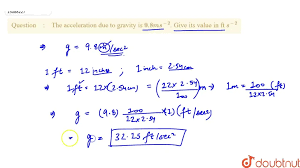 Question : The acceleration due to gravity is 9.8 m s⁻². Give its value in ft s⁻²
⇒ g = 9.8 m/sec²
1 ft = 12 inches , 1 inch = 2.54cm
⇒ 1 ft = 12 × (2.54cm) = (22 × 2.54 / 100) m ⇒ 1m = 100 / 12 × 2.54 (ft)
⇒ g = (9.8) 100 / 12 × 2.54 × (1) (ft/sec²)
g = 32.25 ft/sec²